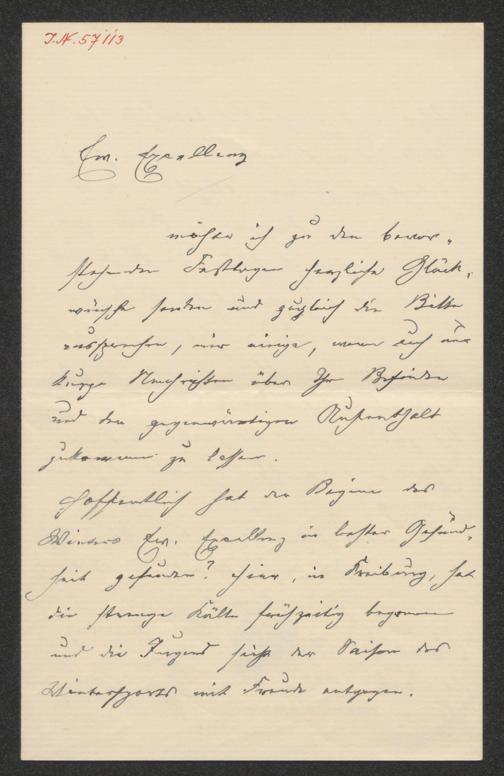 J.N. 57113
Ew. Excellenz
möchte ich zu den bevor-
stehenden Festtagen herzliche Glück-
wünsche senden und zugleich die Bitte
aussprechen, mir einige, wenn auch nur
kurze Nachrichten über Ihr Befinden
und den gegenwärtigen Aufenthalt
zukommen zu lassen.
Hoffentlich hat der Beginn des
Winters Ew. Excellenz in bester Gesund-
heit gefunden? Hier, in Freiburg, hat
die strenge Kälte frühzeitig begonnen
und die Jugend sieht der Saison des
Wintersports mit Freude entgegen.